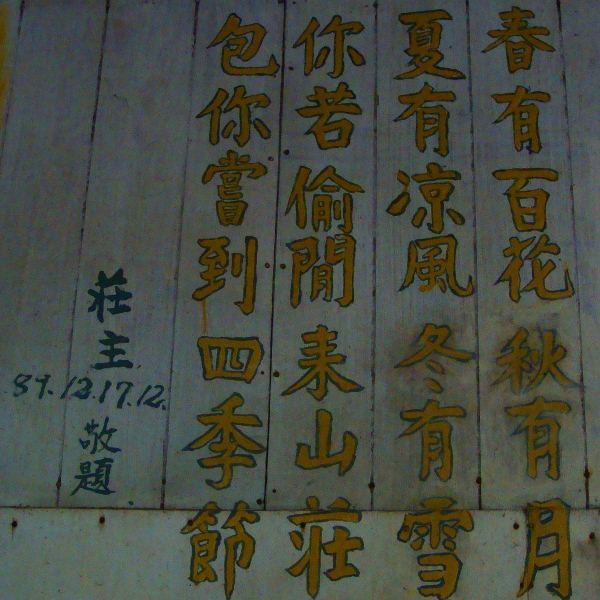 春有百花秋有月
夏有凉風冬有雪
你若偷閒来山莊
包你嘗到四季節
莊主
89.12.17.12.
敬題